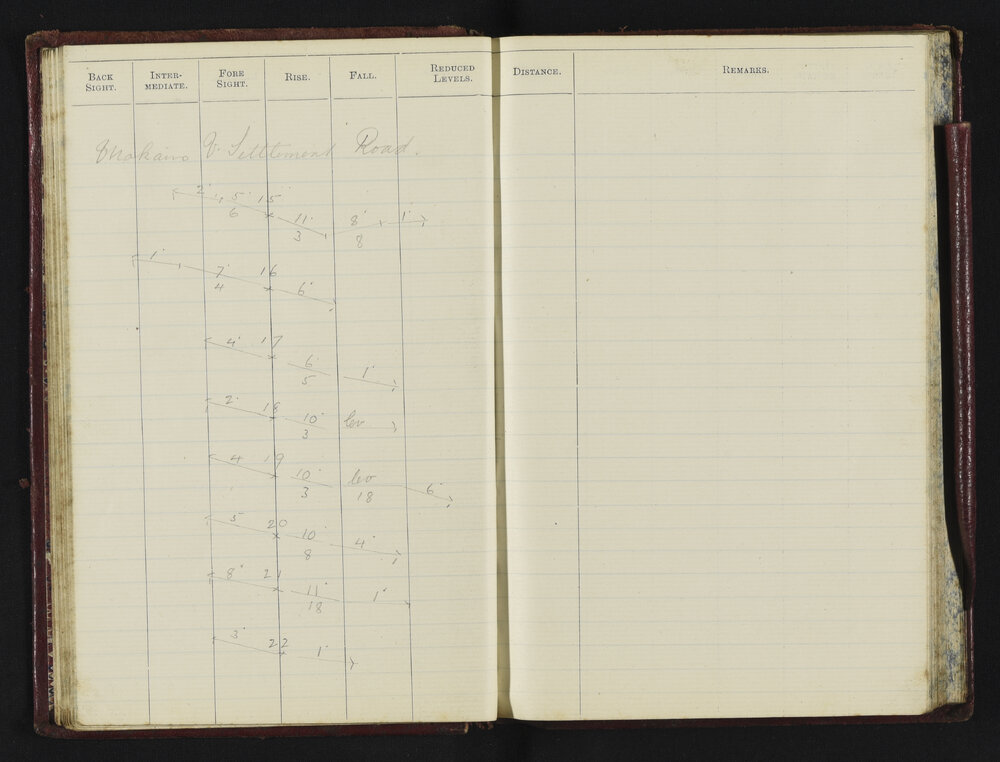 BACK SIGHT. INTER-MEDIATE. FORE SIGHT. RISE. FALL. REDUCED LEVELS. DISTANCE. REMARKS.
V. Settlement Road.
2° 5° 15
4 6 11° 8° 1°
3 8
1° 7° 16
4 6°
4° 17
6° 1°
5
2° 18
10° lev
3
4 19
10° lev 6°
3 18
5 20
10° 4°
8
8° 21
11° 1°
18
3° 22
1°